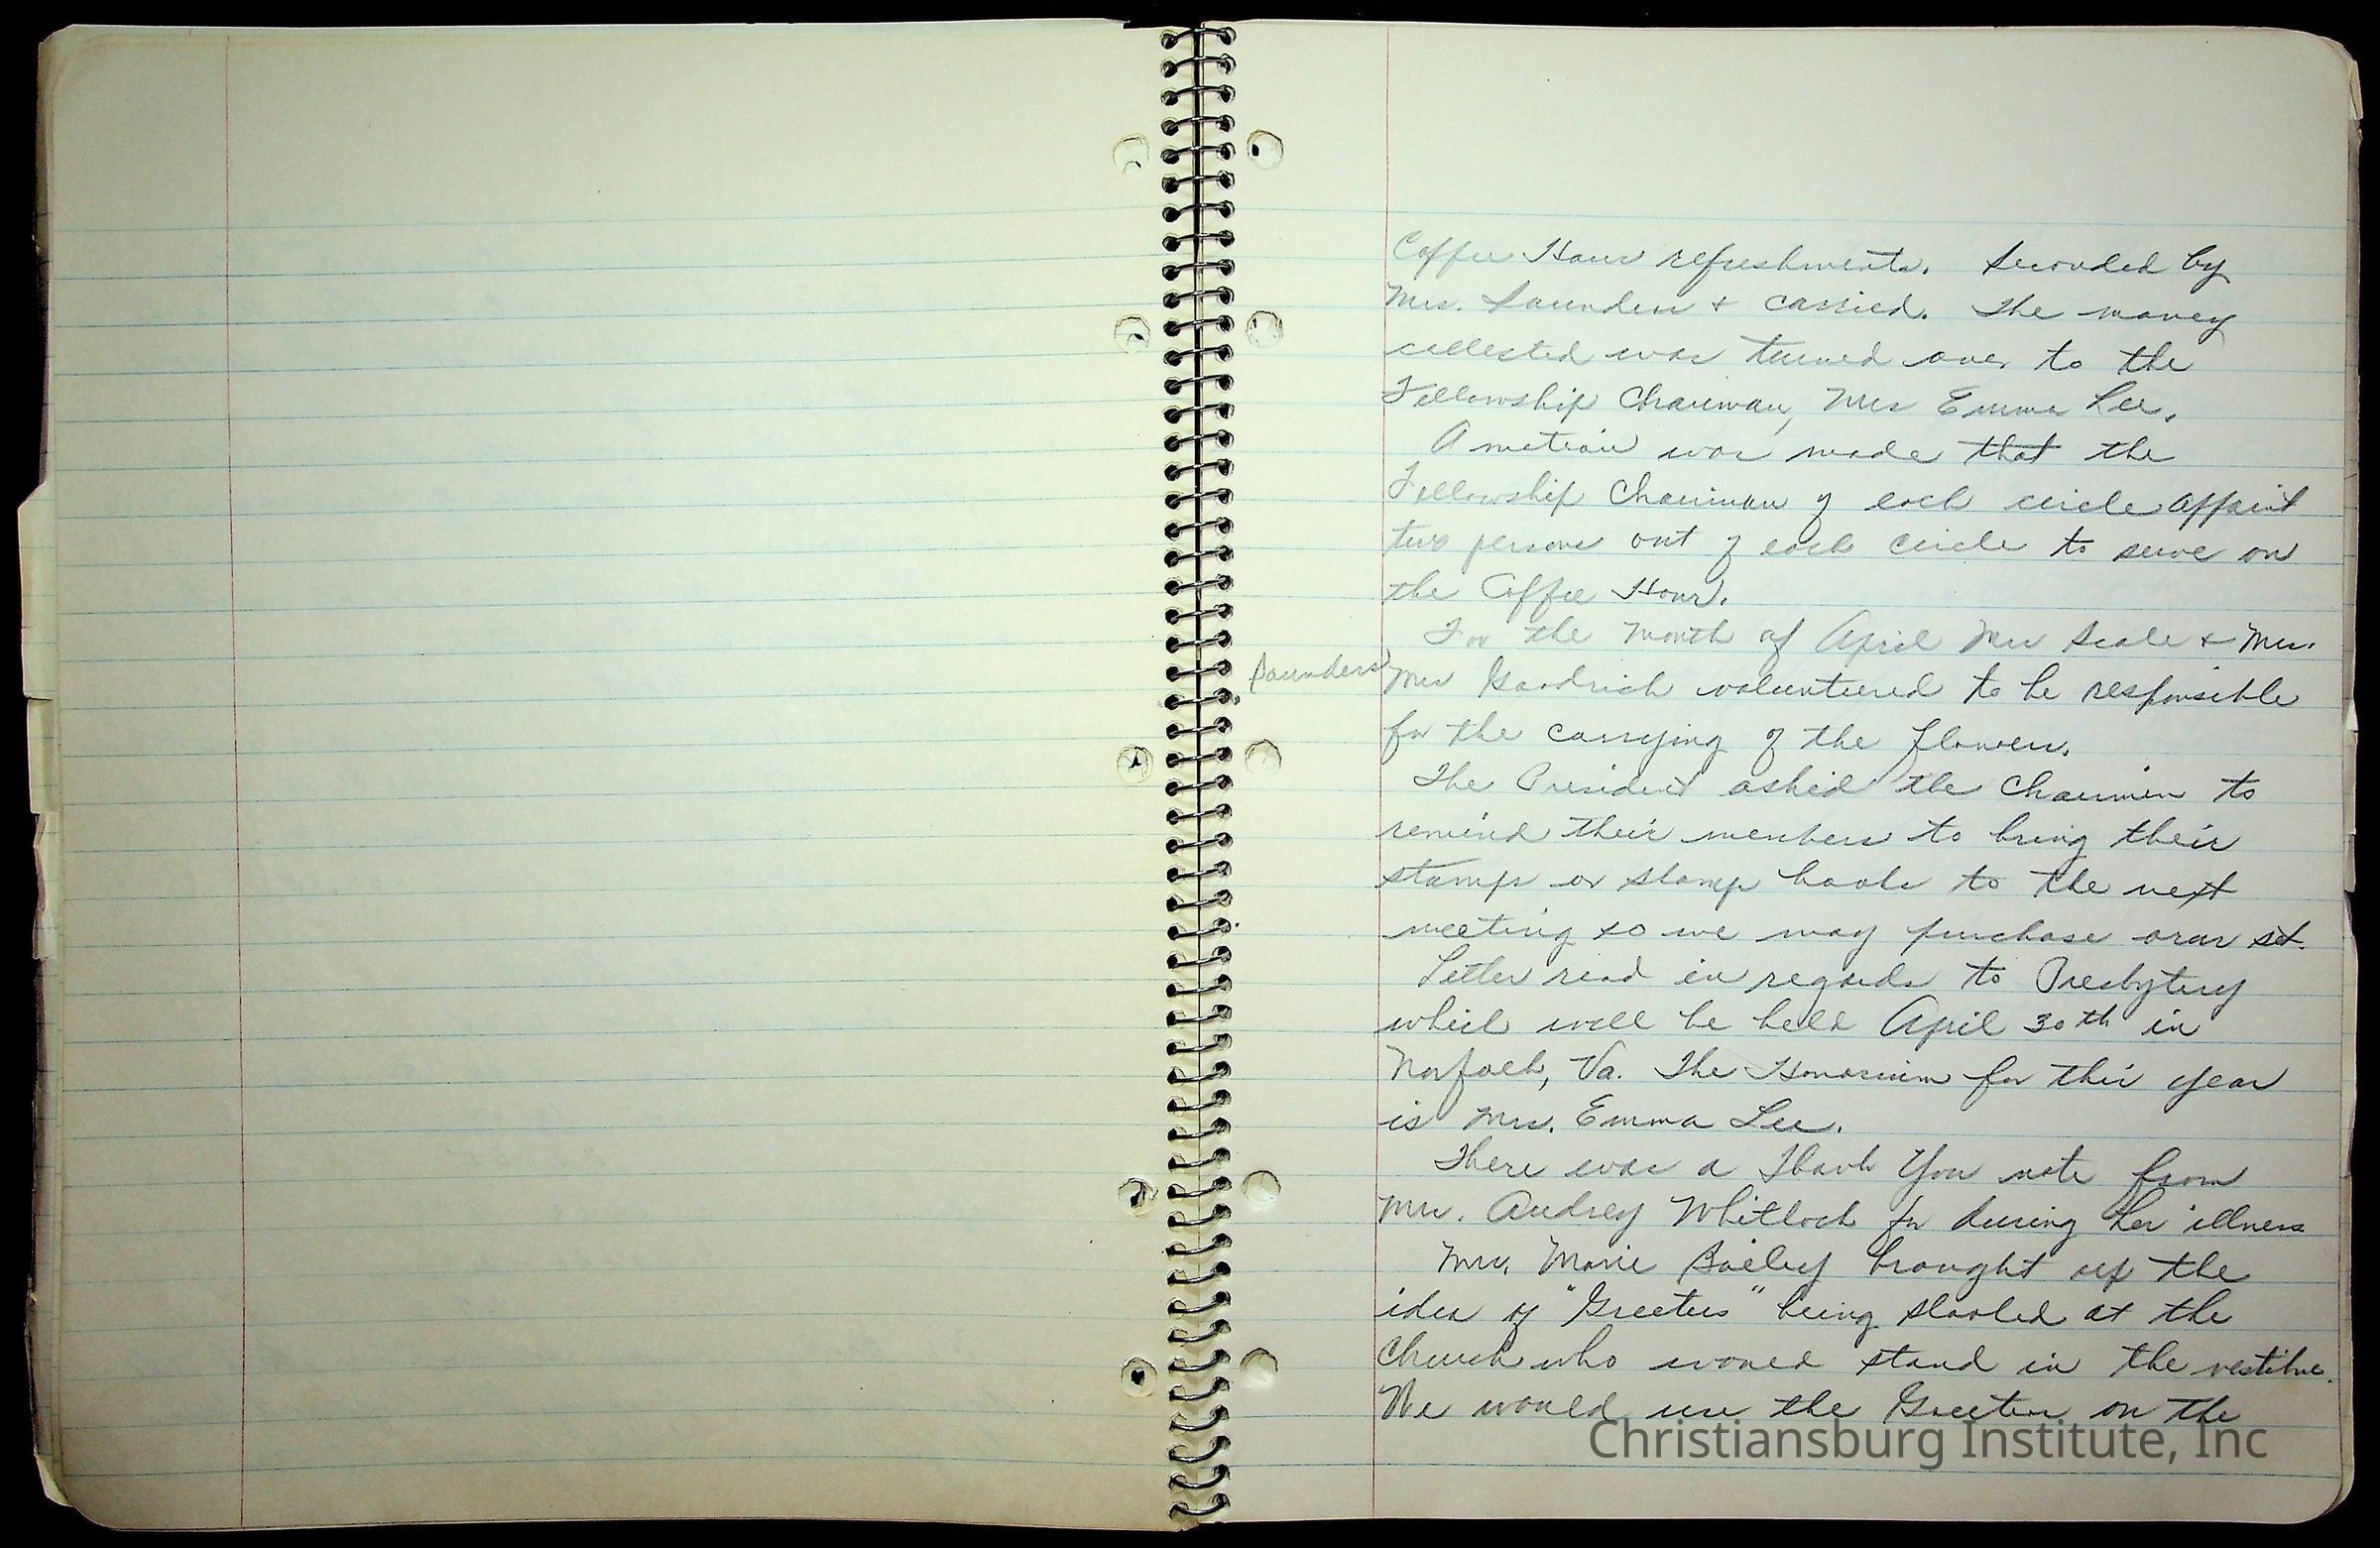 Coffee Hour refreshments. Seconded by
Mrs. Saunders & carried. The money
collected was turned over to the
Fellowship Chairman, Mrs Emma Lee.
A motion was made that the
Fellowship Chairman of each circle appoint
two persons out of each circle to serve on
the Coffee Hour.
For the month of April Mrs Seale & Mrs.
Saunders Mrs Goodrich volunteered to be responsible
for the carrying of the flowers.
The President asked the Chairmen to
remind their members to bring their
stamps or stamp books to the next
meeting so we may purchase our set.
Letter read in regards to Presbytery
which will be held April 30th in
Norfolk, Va. The Honorium for this year
is Mrs. Emma Lee.
There was a Thank You note from
Mrs. Audrey Whitlock for during her illness
Mrs. Marie Bailey brought up the
idea of "Greeters" being started at the
Church who would stand in the vestibue.
We would use the Greeters on the
Christiansburg Institute, Inc